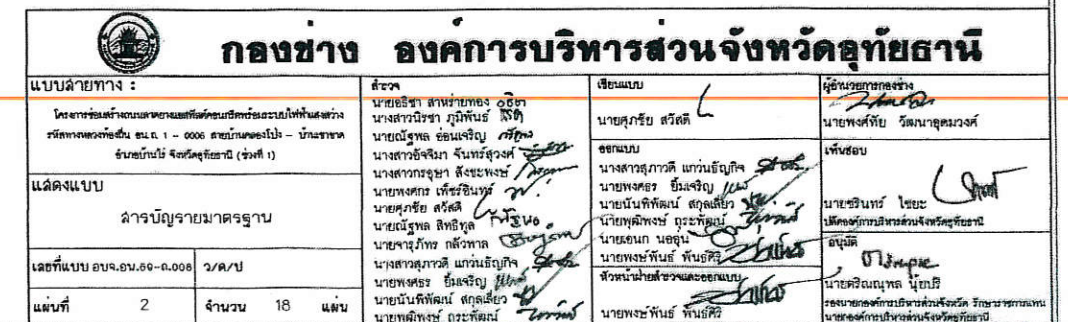 กองช่าง องค์การบริหารส่วนจังหวัดอุทัยธานี
แบบสายทาง :
โครงการซ่อมสร้างถนนลาดยางแอสฟัลต์คอนกรีตพร้อมระบบไฟฟ้าแสงสว่าง
รหัสทางหลวงท้องถิ่น อน.ถ. 1 - 0006 สายบ้านคลองโป่ง - บ้านเขาขาด
อำเภอบ้านไร่ จังหวัดอุทัยธานี (ช่วงที่ 1)
แสดงแบบ
สารบัญรายมาตรฐาน
เลขที่แบบ อบจ.อน.69-ถ.006 ว/ด/ป
แผ่นที่ 2 จำนวน 18 แผ่น
สำรวจ
นายอธิชา สาหร่ายทอง
นางสาวนิรชา ภูมิพันธ์
นายณัฐพล อ่อนเจริญ
นางสาวอัจจิมา จันทร์สุวงศ์
นางสาวกรอุษา สังขะพงษ์
นายพงศกร เพ็ชร์อินทร์
นายศุภชัย สวัสดี
นายณัฐพล สิทธิทูล
นายจารุภัทร กลัวทาล
นางสาวสุภาวดี แก่นธัญกิจ
นายพงศธร ยิ้มเจริญ
นายนันทิพัฒน์ สกุลเลี่ยว
นายพุฒิพงษ์ ถุระพัฒน์
เขียนแบบ
นายศุภชัย สวัสดี
ออกแบบ
นางสาวสุภาวดี แก่นธัญกิจ
นายพงศธร ยิ้มเจริญ
นายนันทิพัฒน์ สกุลเลี่ยว
นายพุฒิพงษ์ ถุระพัฒน์
นายเอนก นออุ่น
นายพงษ์พันธ์ พันธ์ศิริ
หัวหน้าฝ่ายสำรวจและออกแบบ
นายพงษ์พันธ์ พันธ์ศิริ
ผู้อำนวยการกองช่าง
นายพงศ์ทัย วัฒนาอุดมวงศ์
เห็นชอบ
นายชรินทร์ ไชยะ
ปลัดองค์การบริหารส่วนจังหวัดอุทัยธานี
อนุมัติ
นายตริณณุพล นุ้ยปรี
รองนายกองค์การบริหารส่วนจังหวัด รักษาราชการแทน
นายกองค์การบริหารส่วนจังหวัดอุทัยธานี